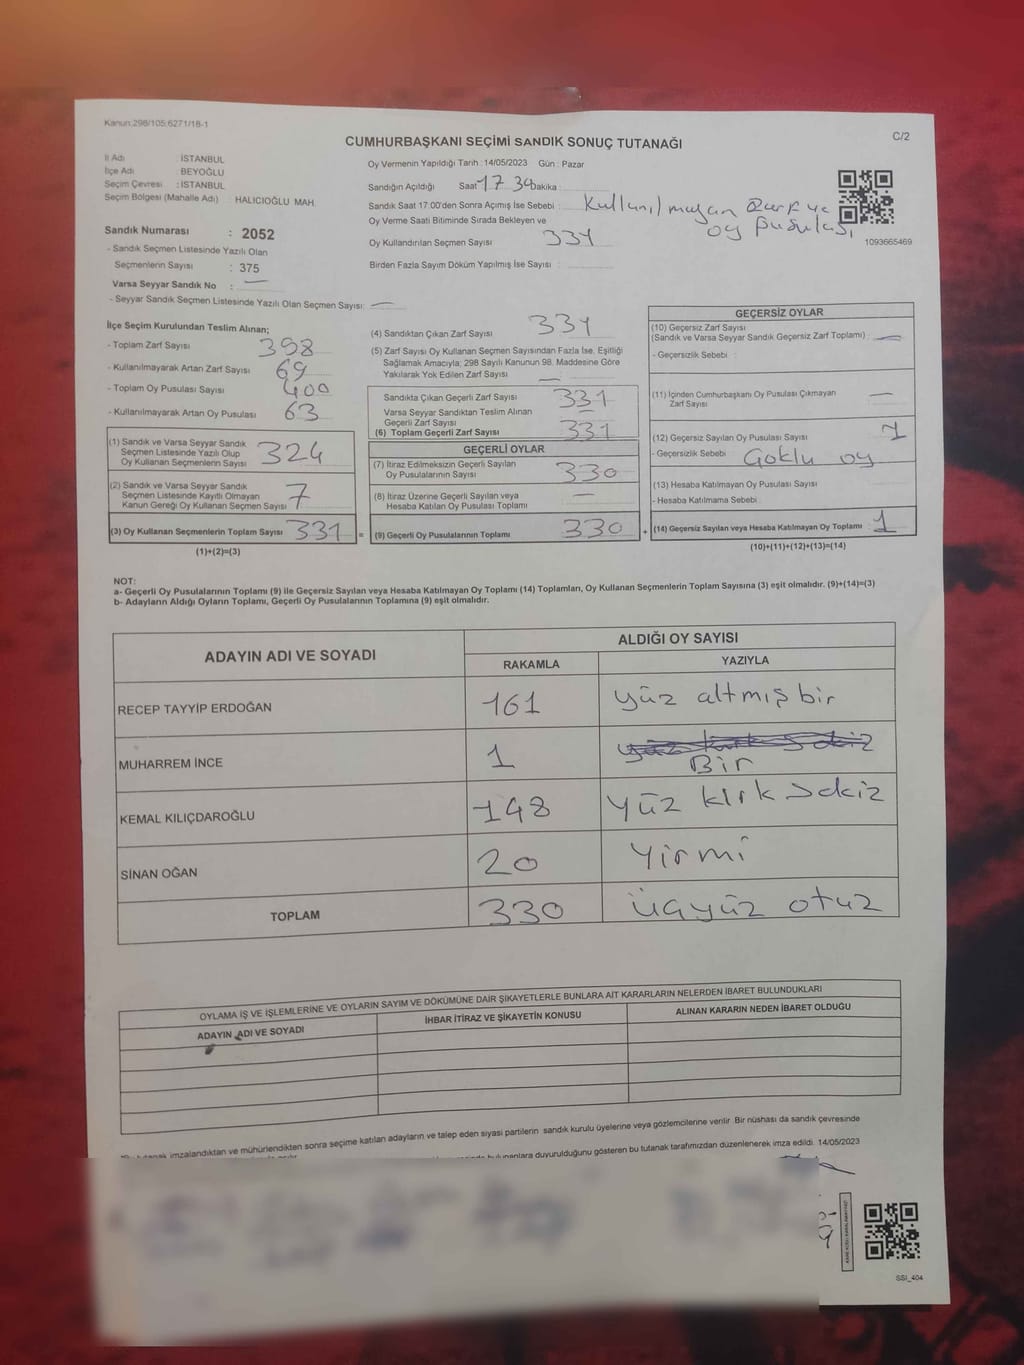 Kanun:298/105;6271/18-1
C/2
CUMHURBAŞKANI SEÇİMİ SANDIK SONUÇ TUTANAĞI
İl Adı : İSTANBUL
İlçe Adı : BEYOĞLU
Seçim Çevresi : İSTANBUL
Seçim Bölgesi (Mahalle Adı) : HALICIOĞLU MAH.
Sandık Numarası : 2052
- Sandık Seçmen Listesinde Yazılı Olan
Seçmenlerin Sayısı : 375
Varsa Seyyar Sandık No : —
- Seyyar Sandık Seçmen Listesinde Yazılı Olan Seçmen Sayısı: —
Oy Vermenin Yapıldığı Tarih : 14/05/2023 Gün : Pazar
Sandığın Açıldığı Saat 17 30 Dakika :
Sandık Saat 17:00'den Sonra Açımış İse Sebebi : Kullanılmayan zarf ve
oy pusulası
Oy Verme Saati Bitiminde Sırada Bekleyen ve
Oy Kullandırılan Seçmen Sayısı 331
Birden Fazla Sayım Döküm Yapılmış İse Sayısı :
1093665469
İlçe Seçim Kurulundan Teslim Alınan;
- Toplam Zarf Sayısı 398
- Kullanılmayarak Artan Zarf Sayısı 69
- Toplam Oy Pusulası Sayısı 400
- Kullanılmayarak Artan Oy Pusulası 63
(1) Sandık ve Varsa Seyyar Sandık
Seçmen Listesinde Yazılı Olup
Oy Kullanan Seçmenlerin Sayısı 324
(2) Sandık ve Varsa Seyyar Sandık
Seçmen Listesinde Kayıtlı Olmayan
Kanun Gereği Oy Kullanan Seçmen Sayısı 7
(3) Oy Kullanan Seçmenlerin Toplam Sayısı 331 =
(1)+(2)=(3)
(4) Sandıktan Çıkan Zarf Sayısı 331
(5) Zarf Sayısı Oy Kullanan Seçmen Sayısından Fazla İse, Eşitliği
Sağlamak Amacıyla; 298 Sayılı Kanunun 98. Maddesine Göre
Yakılarak Yok Edilen Zarf Sayısı —
Sandıkta Çıkan Geçerli Zarf Sayısı 331
Varsa Seyyar Sandıktan Teslim Alınan
Geçerli Zarf Sayısı —
(6) Toplam Geçerli Zarf Sayısı 331
GEÇERLİ OYLAR
(7) İtiraz Edilmeksizin Geçerli Sayılan
Oy Pusulalarının Sayısı 330
(8) İtiraz Üzerine Geçerli Sayılan veya
Hesaba Katılan Oy Pusulası Toplamı —
(9) Geçerli Oy Pusulalarının Toplamı 330 +
GEÇERSİZ OYLAR
(10) Geçersiz Zarf Sayısı
(Sandık ve Varsa Seyyar Sandık Geçersiz Zarf Toplamı) —
- Geçersizlik Sebebi :
(11) İçinden Cumhurbaşkanı Oy Pusulası Çıkmayan
Zarf Sayısı —
(12) Geçersiz Sayılan Oy Pusulası Sayısı 1
- Geçersizlik Sebebi Çoklu oy
(13) Hesaba Katılmayan Oy Pusulası Sayısı
- Hesaba Katılmama Sebebi
(14) Geçersiz Sayılan veya Hesaba Katılmayan Oy Toplamı 1
(10)+(11)+(12)+(13)=(14)
NOT:
a- Geçerli Oy Pusulalarının Toplamı (9) ile Geçersiz Sayılan veya Hesaba Katılmayan Oy Toplamı (14) Toplamları, Oy Kullanan Seçmenlerin Toplam Sayısına (3) eşit olmalıdır. (9)+(14)=(3)
b- Adayların Aldığı Oyların Toplamı, Geçerli Oy Pusulalarının Toplamına (9) eşit olmalıdır.
ADAYIN ADI VE SOYADI
ALDIĞI OY SAYISI
RAKAMLA YAZIYLA
RECEP TAYYİP ERDOĞAN 161 yüz altmış bir
MUHARREM İNCE 1 Bir
KEMAL KILIÇDAROĞLU 148 yüz kırk sekiz
SİNAN OĞAN 20 Yirmi
TOPLAM 330 üçyüz otuz
OYLAMA İŞ VE İŞLEMLERİNE VE OYLARIN SAYIM VE DÖKÜMÜNE DAİR ŞİKAYETLERLE BUNLARA AİT KARARLARIN NELERDEN İBARET BULUNDUKLARI
ADAYIN ADI VE SOYADI İHBAR İTİRAZ VE ŞİKAYETİN KONUSU ALINAN KARARIN NEDEN İBARET OLDUĞU
tutanak imzalandıktan ve mühürlendikten sonra seçime katılan adayların ve talep eden siyasi partilerin sandık kurulu üyelerine veya gözlemcilerine verilir. Bir nüshası da sandık çevresinde
bulunanlara duyurulduğunu gösteren bu tutanak tarafımızdan düzenlenerek imza edildi. 14/05/2023
SSİ_404